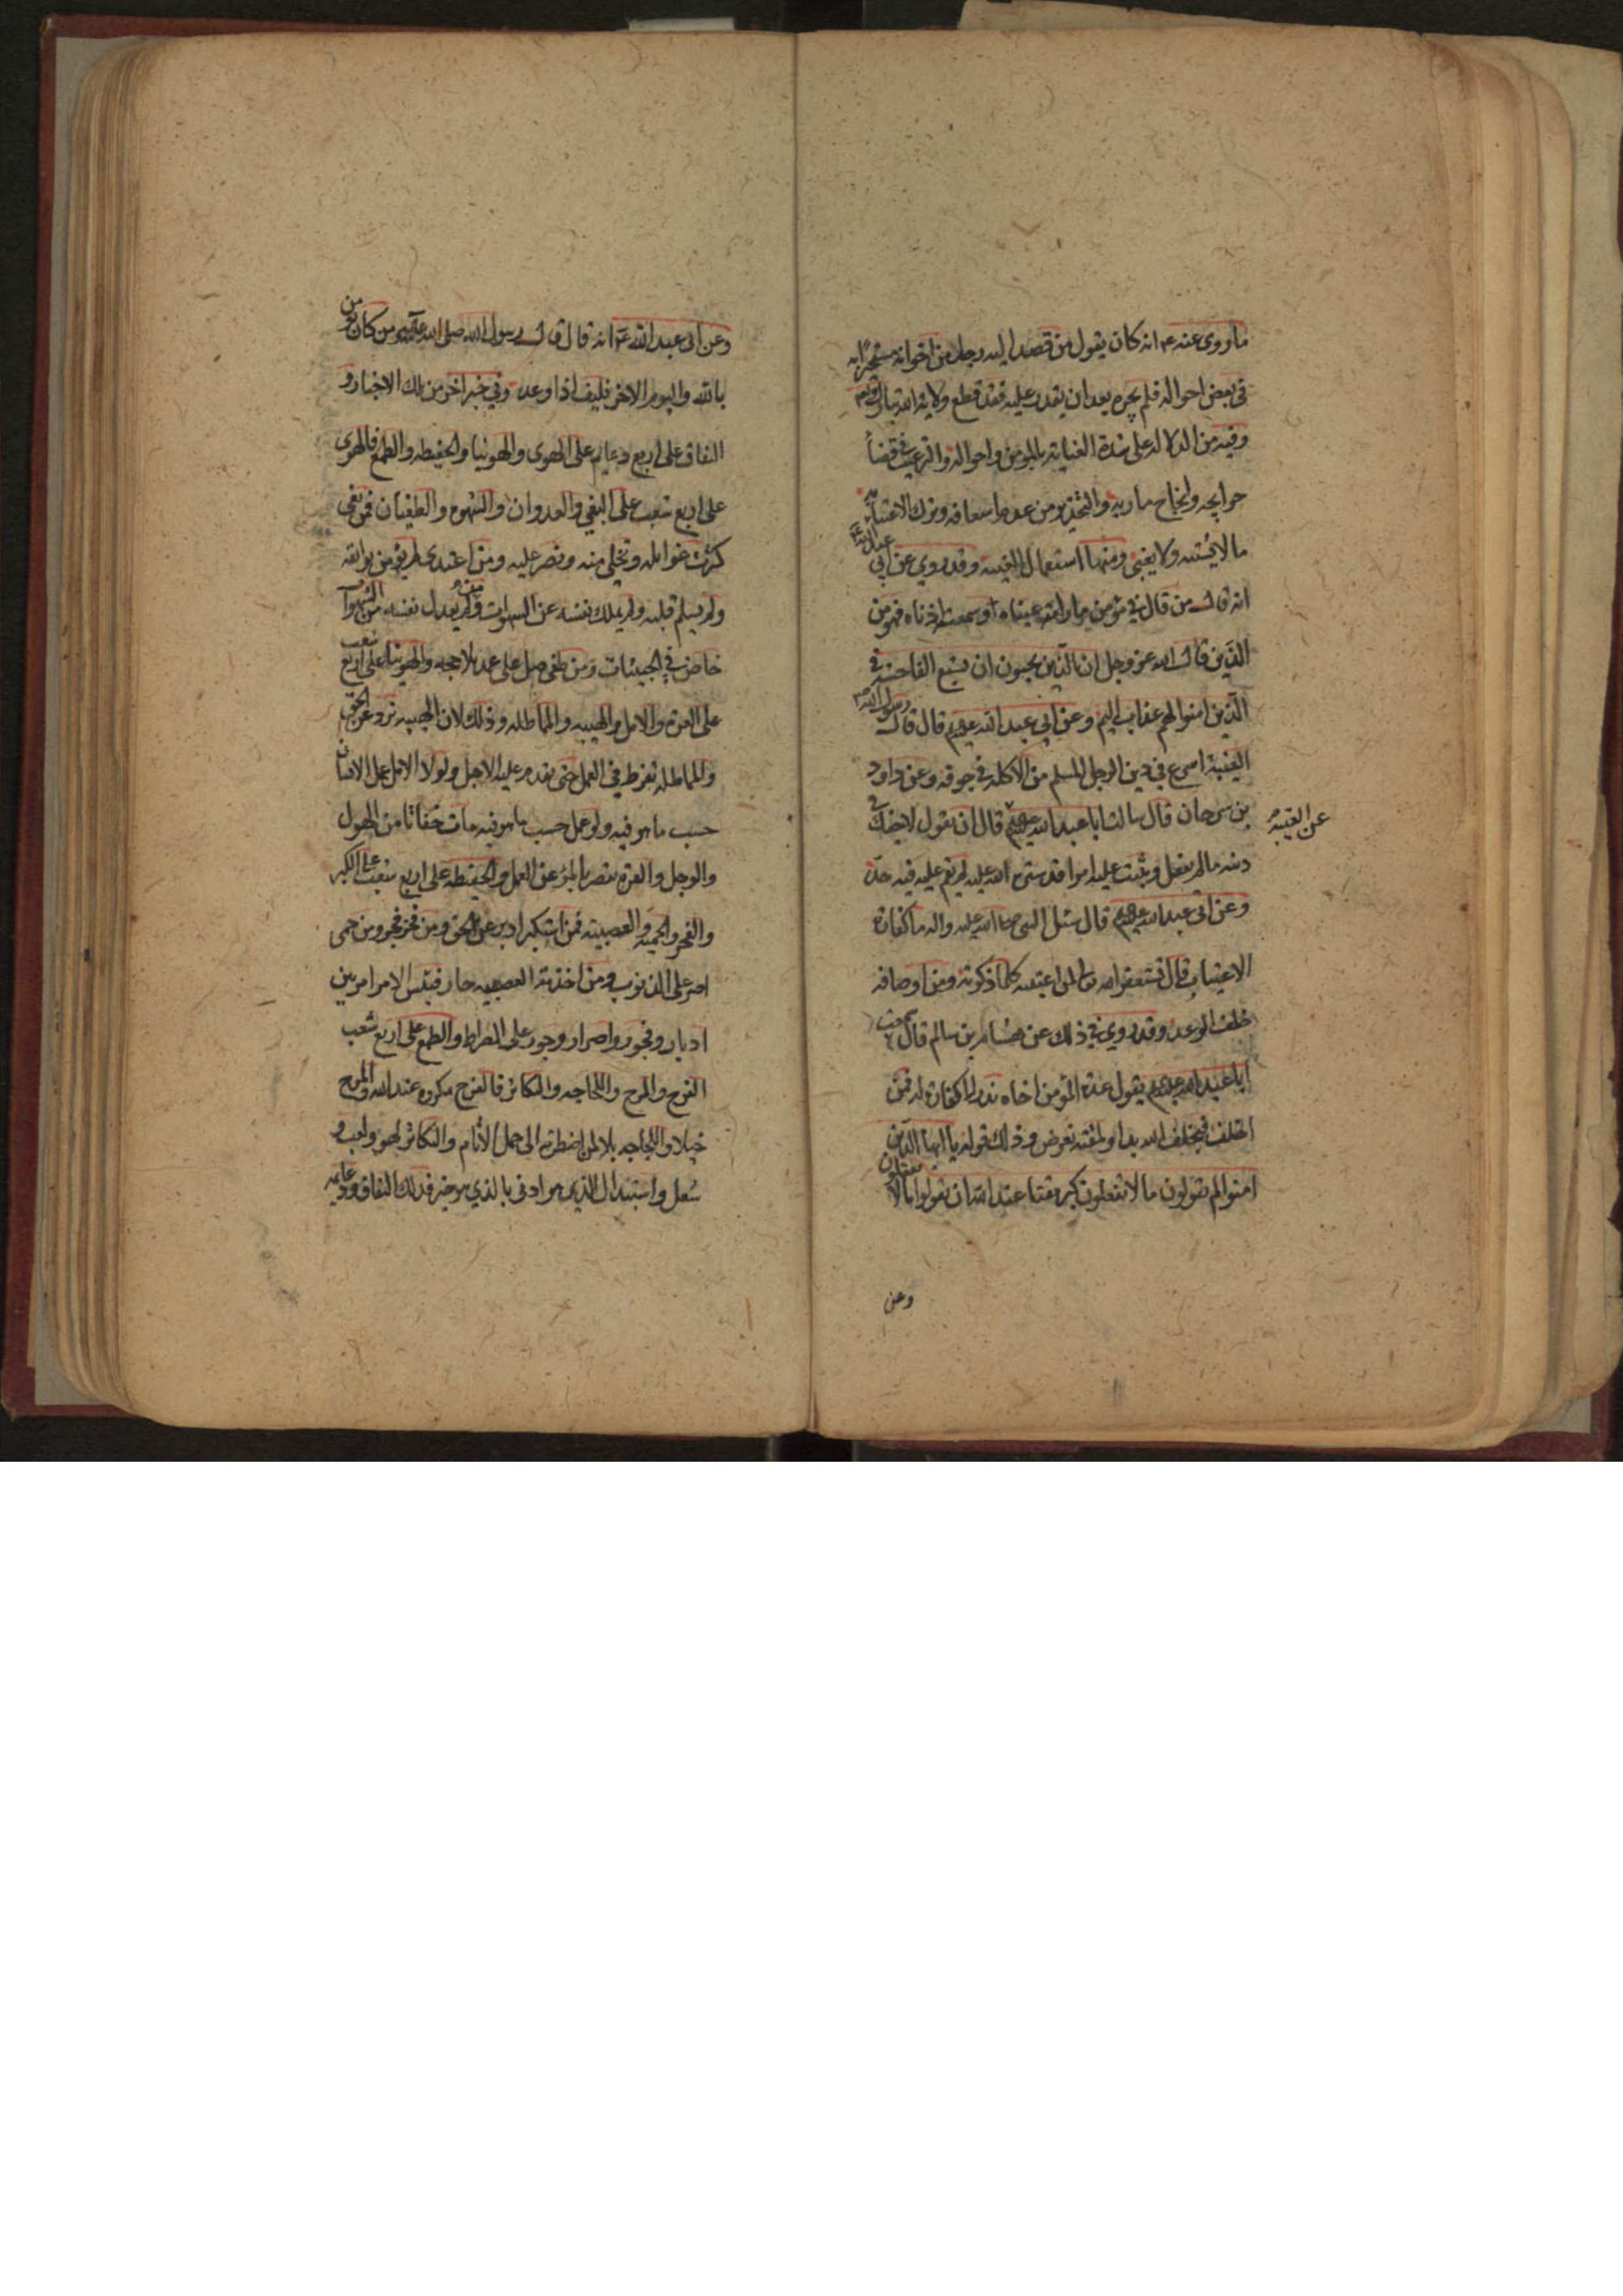 ما روى عنه ع انه كان يقول من قصد اليه رجل من اخوانه مستجيرا به
فى بعض احواله فلم يجره بعد ان يقدر عليه فقد قطع ولاية الله تبارك وتعالى
وفيه من الدلاله على شدة العناية بالمؤمن واحواله والترغيب فى قضاء
حوايجه وانجاح ماربه والتحذير من عدم اسعافه وترك الاعتناء به
ما لا يخفى ومنها استعمال الغيبه وقد روي عن ابي عبد الله ع
انه قال من قال في مؤمن ما راته عيناه او سمعته اذناه فهو من
الذين قال الله عز وجل ان الذين يحبون ان تشيع الفاحشه في
الذين امنوا لهم عذاب اليم وعن ابي عبد الله عليه السلم قال قال رسول الله ص
الغيبة اسرع في دين الرجل المسلم من الاكله في جوفه وعن داود
بن سرحان قال سالت ابا عبد الله عليه السلم قال ان تقول لاخيك في
عن الغيبة
دينه ما لم يفعل وتثبت عليه امرا قد ستره الله عليه لم يقم عليه فيه حد
وعن ابى عبد الله عليه السلم قال سئل النبى صلى الله عليه واله ما كفارة
الاغتياب قال تستغفر الله لمن اغتبته كلما ذكرته ومن اوصافه
خلف الوعد وقد روي في ذلك عن هشام بن سالم قال سمعت
ابا عبد الله عليه السلم يقول عدة المؤمن اخاه نذر لا كفارة له فمن
اخلف فبخلف الله بدا ولمقته تعرض وذلك قوله يا ايها الذين
امنوا لم تقولون ما لا تفعلون كبر مقتا عند الله ان تقولوا ما لا تفعلون
وعن
وعن ابى عبد الله ع انه قال قال رسول الله صلى الله عليه وآله من كان يؤمن
بالله واليوم الاخر فليف اذا وعد وفي خبر اخر من تلك الاخبار و
النفاق على اربع دعايم على الهوى والهوينا والحفيظه والطمع فالهوى
على اربع شعب على البغي والعدوان والشهوه والطغيان فمن بغى
كثرت غوايله وتخلى منه ونصر عليه ومن اعتدى لم يؤمن بوايقه
ولم يسلم قلبه ولم يملك نفسه عن الشهوات ومن لم يعدل نفسه من الشهوات
خاض في الخبيثات ومن طغى ضل على عمد بلا حجه والهوينا على اربع شعب
على الغره والامل والهيبه والمماطله وذلك لان الهيبه ترد عن الحق
والمماطله تفرط في العمل حتى يقدم عليه الاجل ولولا الامل علم الانسان
حسب ما هو فيه ولو علم حسب ما هو فيه مات خفاتا من الهول
والوجل والغره تقصر بالمرء عن العمل والحفيظه على اربع شعب على الكبر
والفخر والحميه والعصبيته فمن استكبر ادبر عن الحق ومن فخر فجر ومن حمى
اصر على الذنوب ومن اخذته العصبيه حار فبئس الامر امر بين
ادبار وفجور واصرار وجور على الصراط والطمع على اربع شعب
الفرح والمرح واللجاجه والتكاثر فالفرح مكروه عند الله والمرح
خيلا واللجاجه بلا لمن اضطرته الى حمل الآثام والتكاثر لهو ولعب و
شغل واستبدال الذي هو ادنى بالذي هو خير فذلك النفاق ودعايمه